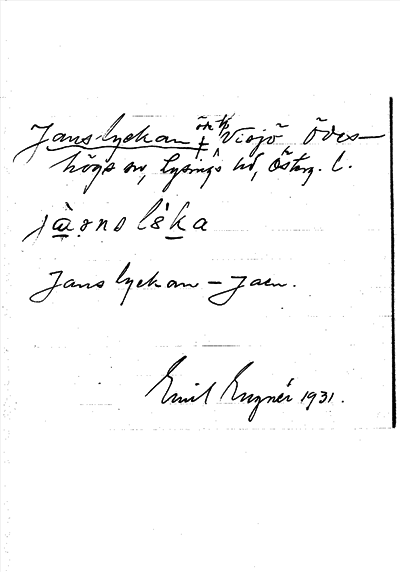 Janslyckan ‡ öde tp Visjö Ödes-
högs sn, Lysings hd, Österg. l.
Janslyckan – Jaen.
Emil Engnér 1931.